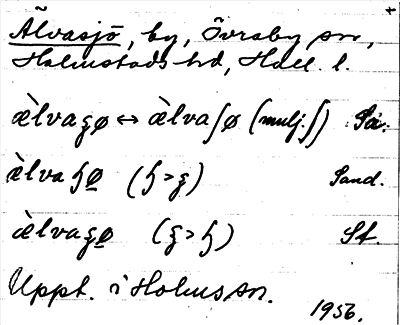 Älvasjö, by, Övraby sn,
Halmstads hd, Hall. l.
æ̀lvaʒø ↔ æ̀lvaʃø (mulj. ʃ) Sä.
æ̀lvaɧø (ɧ>ʒ) Sand.
æ̀lvaʒø (ʒ>ɧ) St.
Uppt. i Holms sn.
1956.